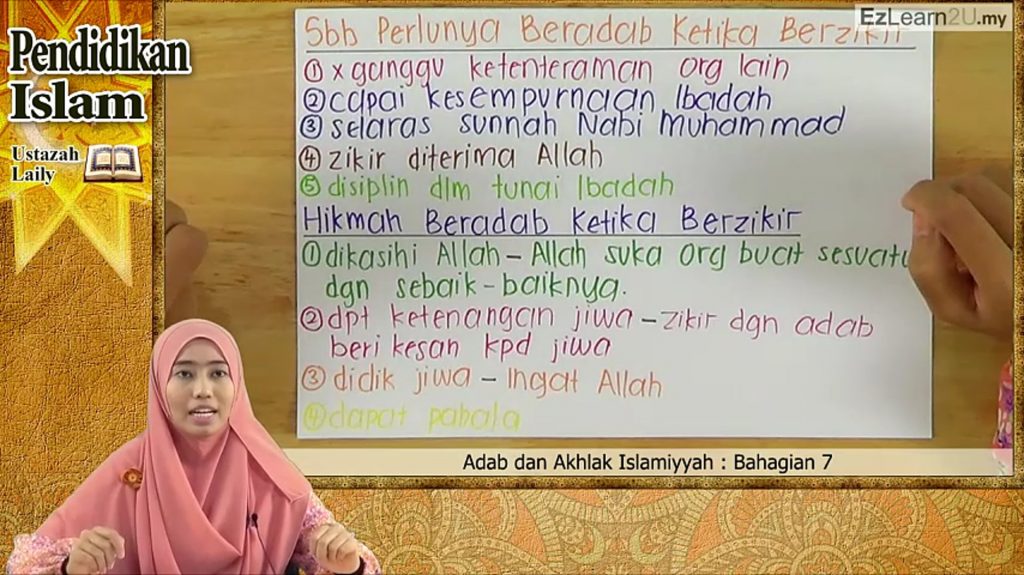 Pendidikan
Islam
Ustazah
Laily
EzLearn2U.my
Sbb Perlunya Beradab Ketika Berzikir
① x ganggu ketenteraman org lain
② capai kesempurnaan Ibadah
③ selaras sunnah Nabi Muhammad
④ zikir diterima Allah
⑤ disiplin dlm tunai Ibadah
Hikmah Beradab Ketika Berzikir
① dikasihi Allah – Allah suka org buat sesuatu
dgn sebaik-baiknya.
② dpt ketenangan jiwa – zikir dgn adab
beri kesan kpd jiwa
③ didik jiwa – Ingat Allah
④ dapat pahala
Adab dan Akhlak Islamiyyah : Bahagian 7